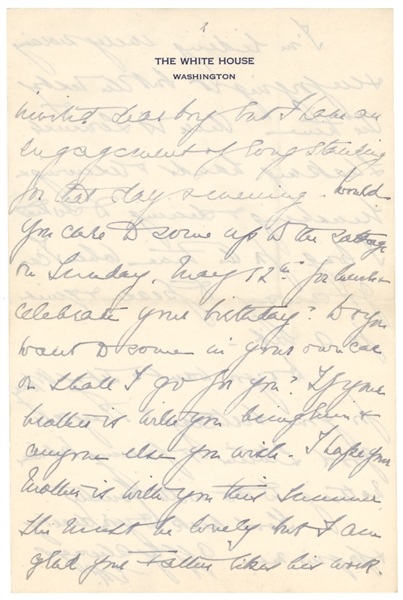 2
THE WHITE HOUSE
WASHINGTON
invited dear boy but I have an
engagement of long standing
for that day & evening. Would
you care to come up to the cottage
on Sunday, May 12th for lunch &
celebrate your birthday? Do you
want to come in your own car
or shall I go for you? If your
brother is with you bring him &
anyone else you wish. I hope your
Mother is with you this summer
She must be lonely but I am
glad your Father likes his work.